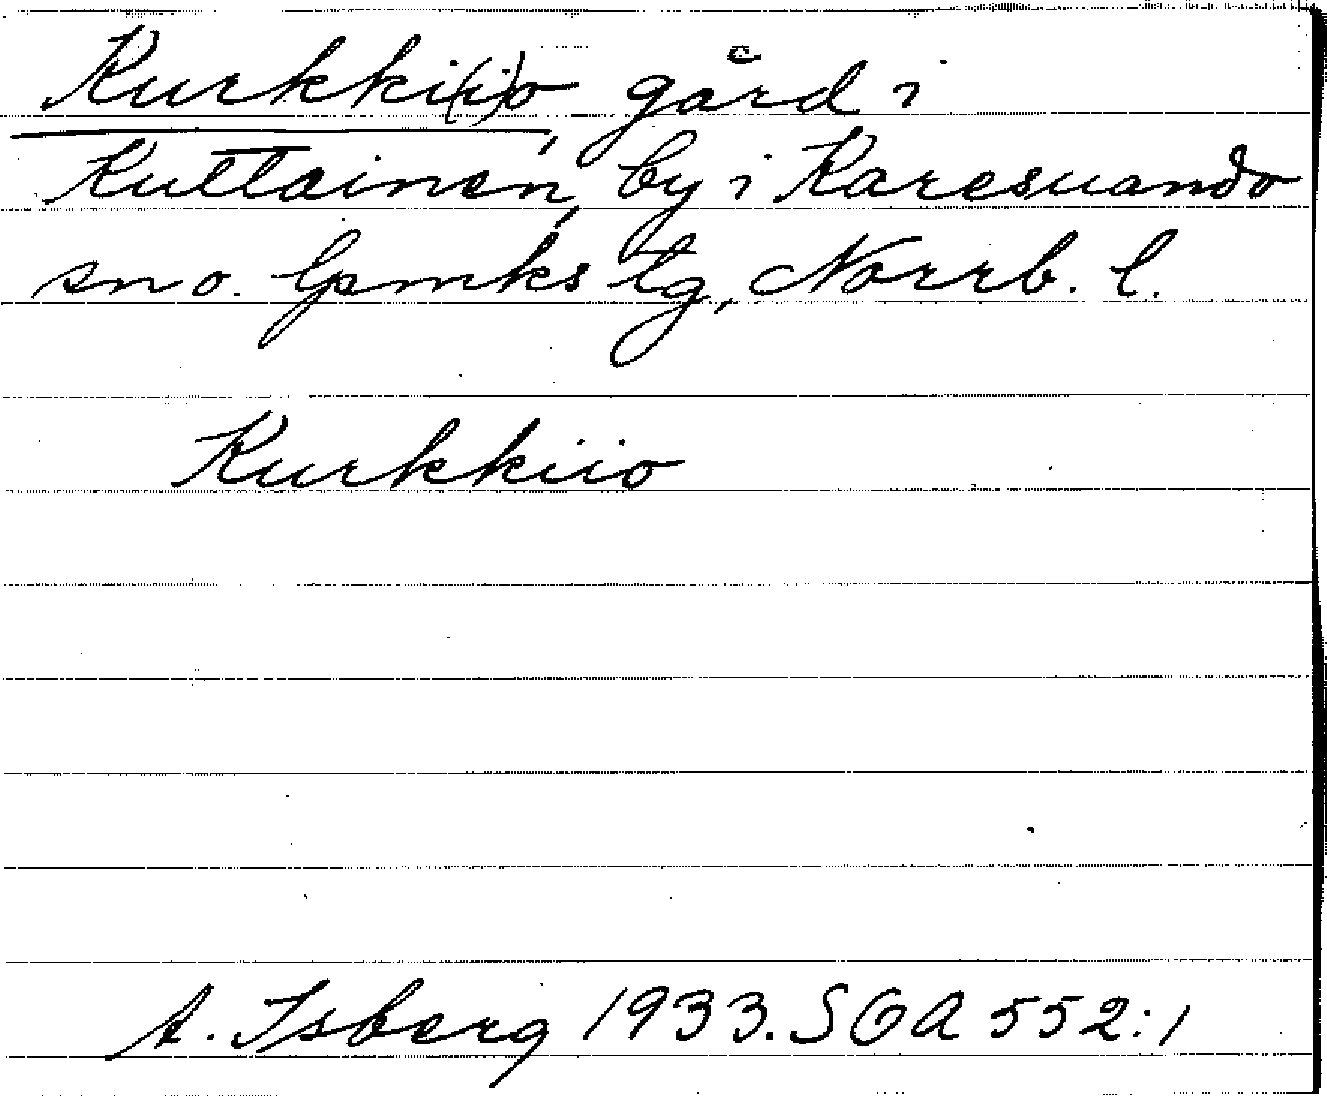 Kurkki(i)o, gård i
Kuttainen, by i Karesuando
sn o. lpmks tg, Norrb. l.
Kurkkiio
A. Isberg 1933. SOA 552:1